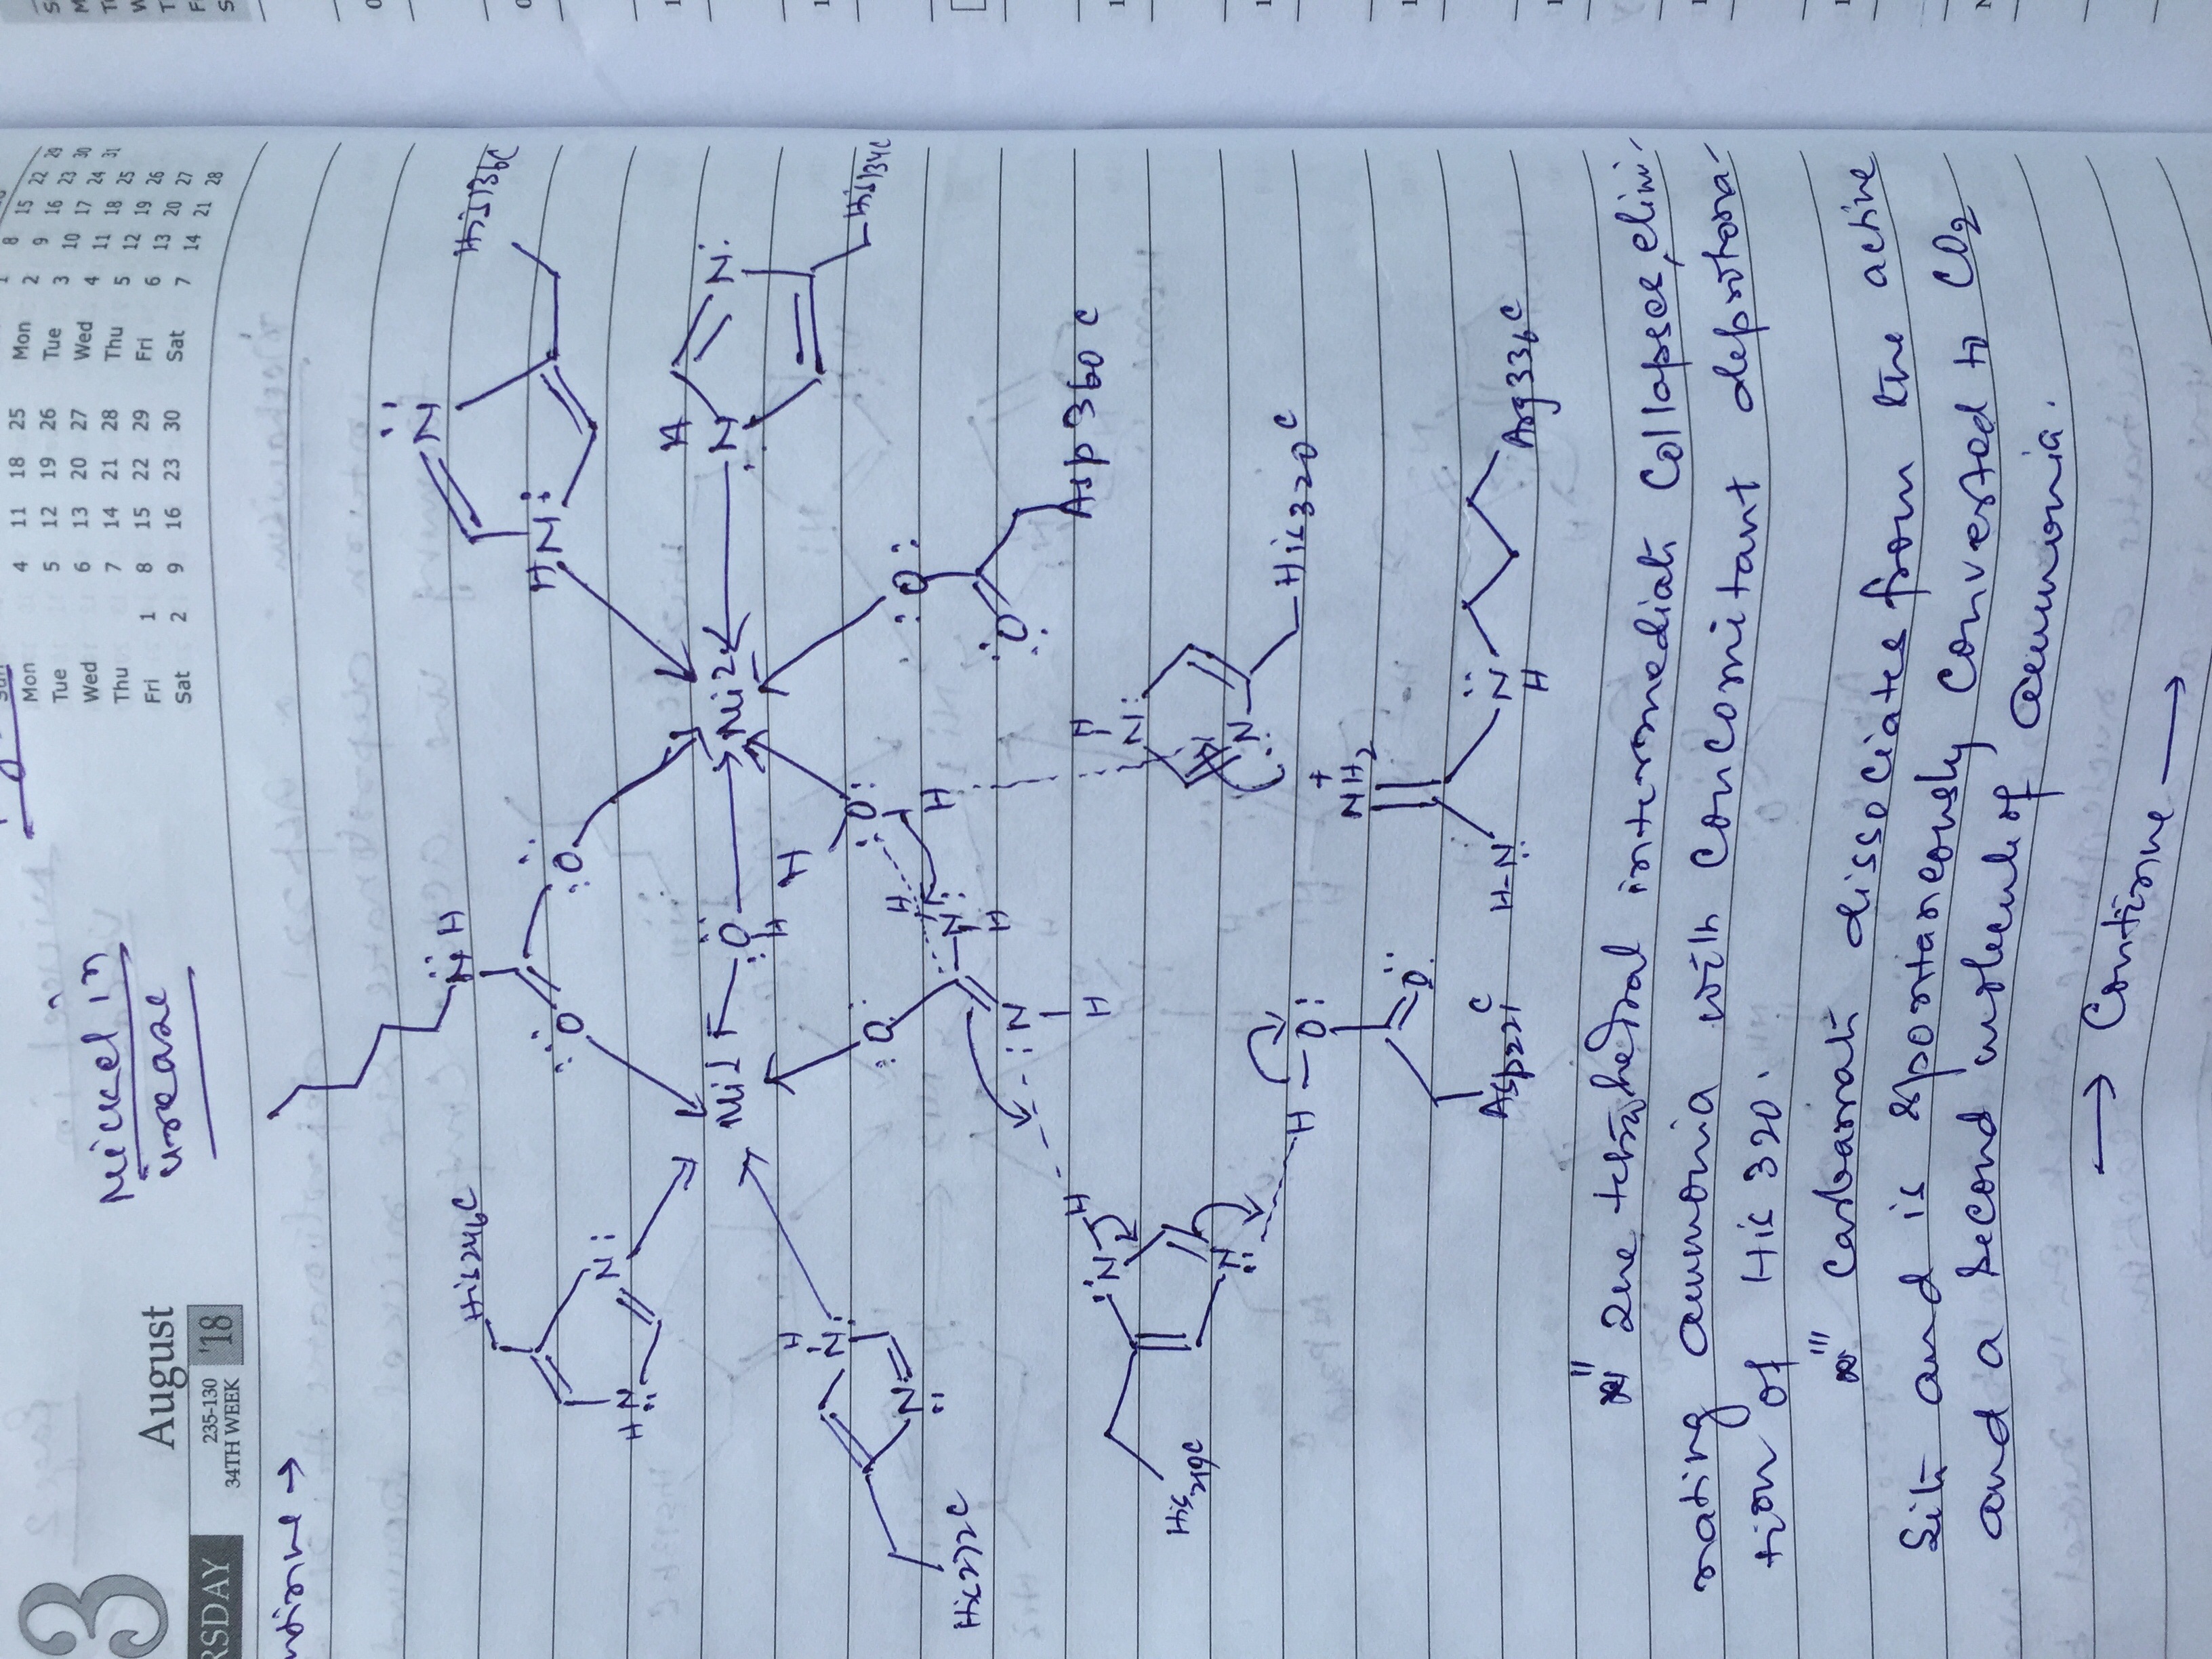 3
RSDAY
August
235-130
34TH WEEK
'18
Mon 4 11 18 25
Tue 5 12 19 26
Wed 6 13 20 27
Thu 7 14 21 28
Fri 1 8 15 22 29
Sat 2 9 16 23 30
Mon 2 9 16 23 30
Tue 3 10 17 24 31
Wed 4 11 18 25
Thu 5 12 19 26
Fri 6 13 20 27
Sat 7 14 21 28
Nickel in
urease
His246C
N
H
His136C
O
O
N
HN
N
HN
Ni1
O
H
Ni2
H
N
N
His134C
H
N
N
His272C
O
H
O
H
O
O
Asp 360 C
H
N
H
N
H
H
N
N
His320C
H
N
N
His219C
H-O
O
Asp221C
NH2
+
H-N
N
H
Arg336C
ii The tetrahedral intermediate collapses, elimi-
nating ammonia with concomitant deprotona-
tion of His 320.
iii Carbamate dissociates from the active
site and is spontaneously converted to CO2
and a second molecule of ammonia.
→ Continue →